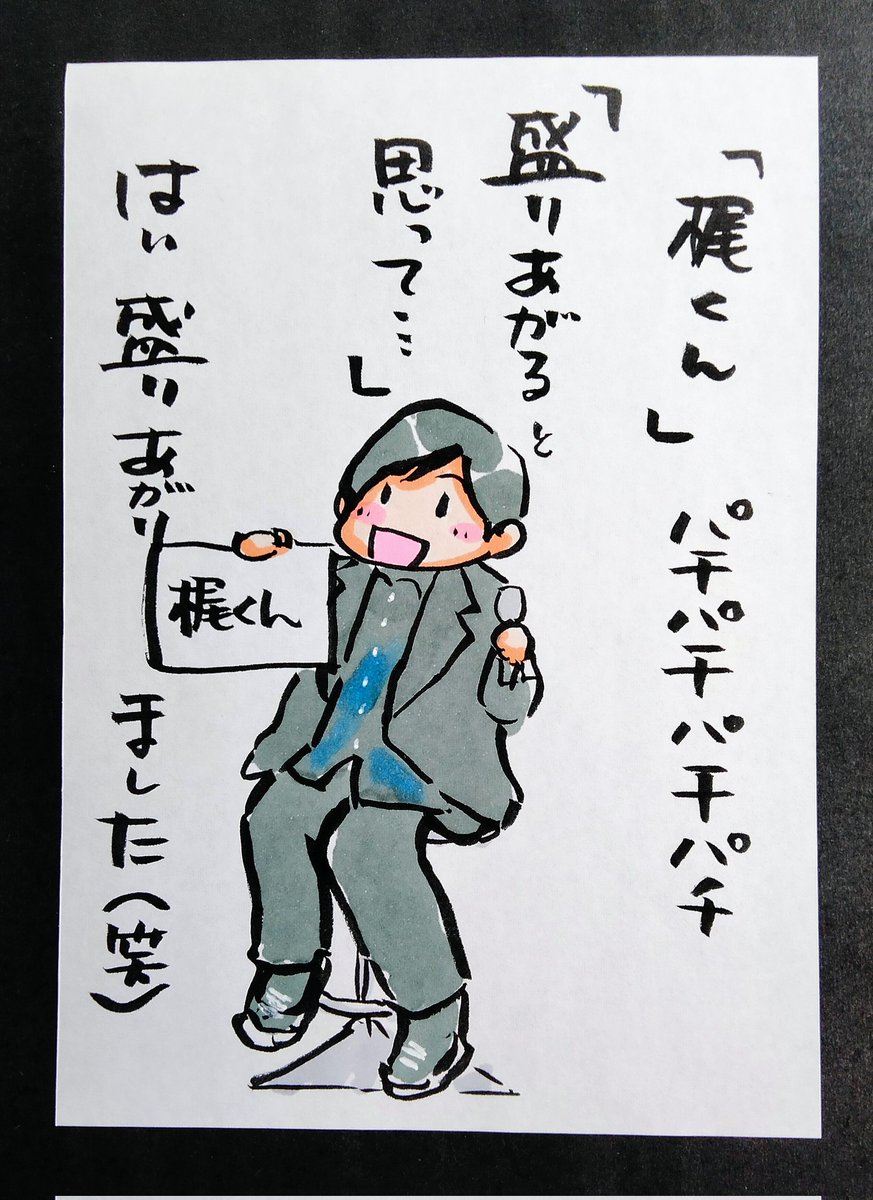 「梶くん」
パチパチパチパチ
「盛りあがると
思って…」
はい 盛りあがり
ました(笑)
梶くん